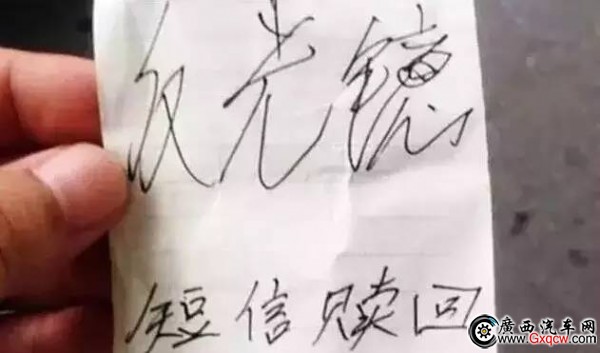 反光镜
短信赎回
廣西汽车网
www.Gxqcw.com